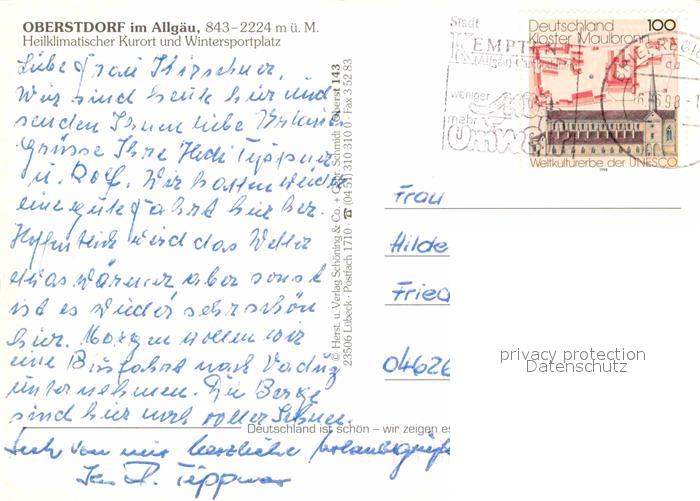 OBERSTDORF im Allgäu, 843–2224 m ü. M.
Heilklimatischer Kurort und Wintersportplatz
Liebe Frau Kirschner,
Wir sind heute hier und
senden Ihnen liebe Urlaubs
Grüsse Ihre Hedi Teppner
u. Rolf. Wir hatten wieder
eine gute Fahrt hier her.
Hoffentlich wird das Wetter
etwas wärmer aber sonst
ist es wieder sehr schön
hier. Morgen wollen wir
eine Busfahrt nach Vaduz
unternehmen. Die Berge
sind hier noch voller Schnee.
Auch von mir herzliche Urlaubsgrüße
Teppner
© Herst. u. Verlag Schöning & Co. + Gebr. Schmidt · Oberst 143
23506 Lübeck · Postfach 1710 · ☎ (04 51) 310 310 · Fax 3 52 83
Deutschland ist schön – wir zeigen es
Stadt
KEMPTEN
(Allgäu)
weniger
mehr
Umwelt
Deutschland 100
Kloster Maulbronn
Weltkulturerbe der UNESCO
1998
Frau
Hilde
Fried
04626
privacy protection
Datenschutz